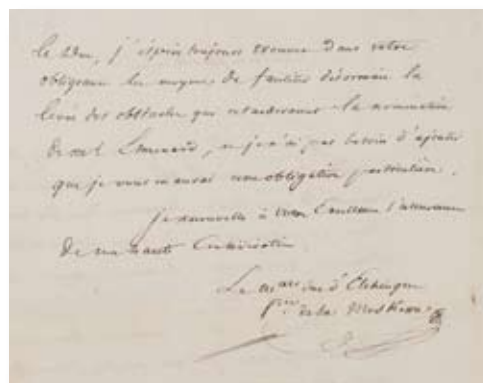 le Duc, j'espère toujours trouver dans votre
obligeance les moyens de faciliter désormais la
levée des obstacles qui retarderaient la nomination
de Mr L, et je n'ai pas besoin d'ajouter
que je vous en aurai une obligation particulière.
je renouvelle à Votre Excellence l'assurance
de ma haute Considération
Le Mal duc d'Elchingen
Pce de la Moskowa